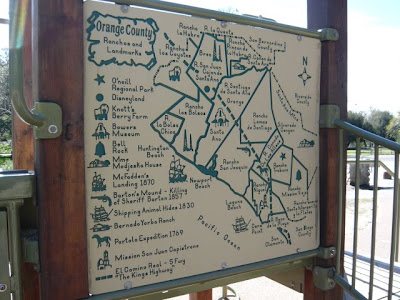 Orange County
Ranchos and
Landmarks
O'neill
Regional Park
Disneyland
Knott's
Berry Farm
Bowers
Museum
Bell
Rock
Mme
Modjeska House
McFadden's
Landing 1870
Barton's Mound - Killing
of Sheriff Barton 1857
Shipping Animal Hides 1830
Bernado Yorba Ranch
Portola Expedition 1769
Mission San Juan Capistrano
El Camino Real - 5 Fwy
"The Kings Highway"
Rancho
La Habra
Brea
R. San Juan
Cajon de
Santa Ana
San Bernardino
County
Riverside
County
R. Santiago
de Santa Ana
Orange
Rancho
Los Bolsas
R. La
Bolsa
Chica
Huntington
Beach
Santa
Ana
Rancho
Lomas
de Santiago
Silverado
Canyon
Rancho
San Joaquin
Newport
Beach
Laguna
Beach
Rancho
Mission Viejo
Dana
Point
San
Clemente
San Diego
County
Pacific Ocean